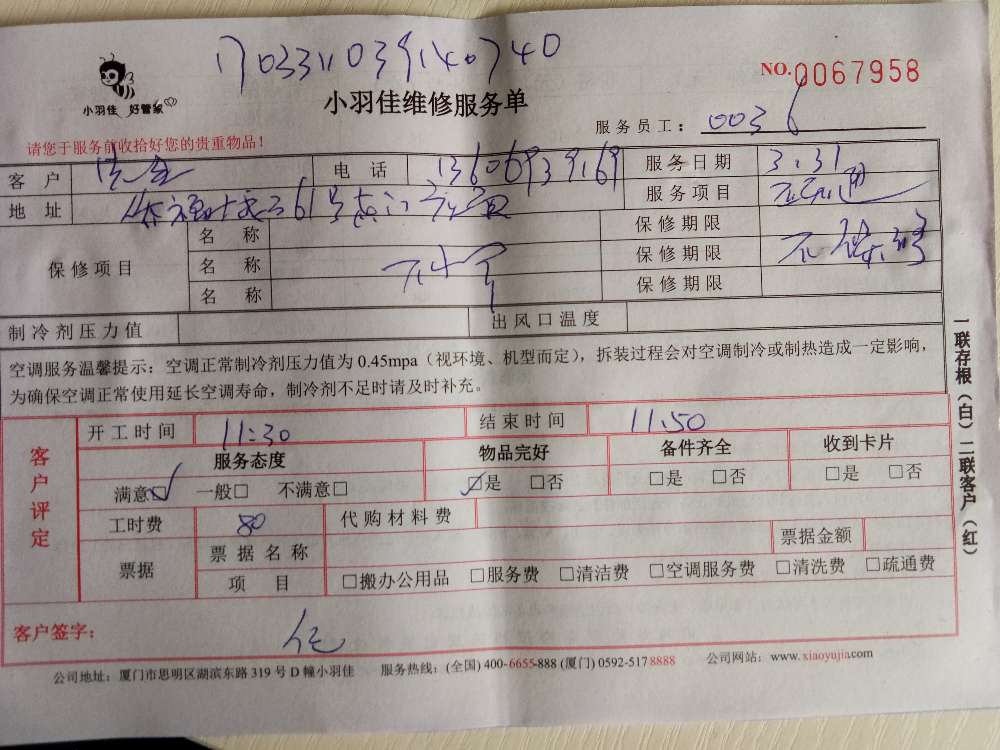 1703311039140740
小羽佳 好管家
小羽佳维修服务单
NO.0067958
请您于服务前收拾好您的贵重物品！
服务员工： 0036
客户 电话 13606939169 服务日期 3.31
地址 61号 服务项目
保修项目 名称 保修期限
名称 保修期限 不保修
名称 保修期限
制冷剂压力值 出风口温度
空调服务温馨提示：空调正常制冷剂压力值为 0.45mpa（视环境、机型而定），拆装过程会对空调制冷或制热造成一定影响，
为确保空调正常使用延长空调寿命，制冷剂不足时请及时补充。
客户评定
开工时间 11:30 结束时间 11.50
服务态度 物品完好 备件齐全 收到卡片
满意□ 一般□ 不满意□ □是 □否 □是 □否 □是 □否
工时费 80 代购材料费
票据 票据名称 票据金额
项目 □搬办公用品 □服务费 □清洁费 □空调服务费 □清洗费 □疏通费
客户签字：
公司地址：厦门市思明区湖滨东路 319 号 D 幢小羽佳 服务热线：(全国) 400-6655-888 (厦门) 0592-5178888 公司网站：www.xiaoyujia.com
一联存根（白）二联客户（红）